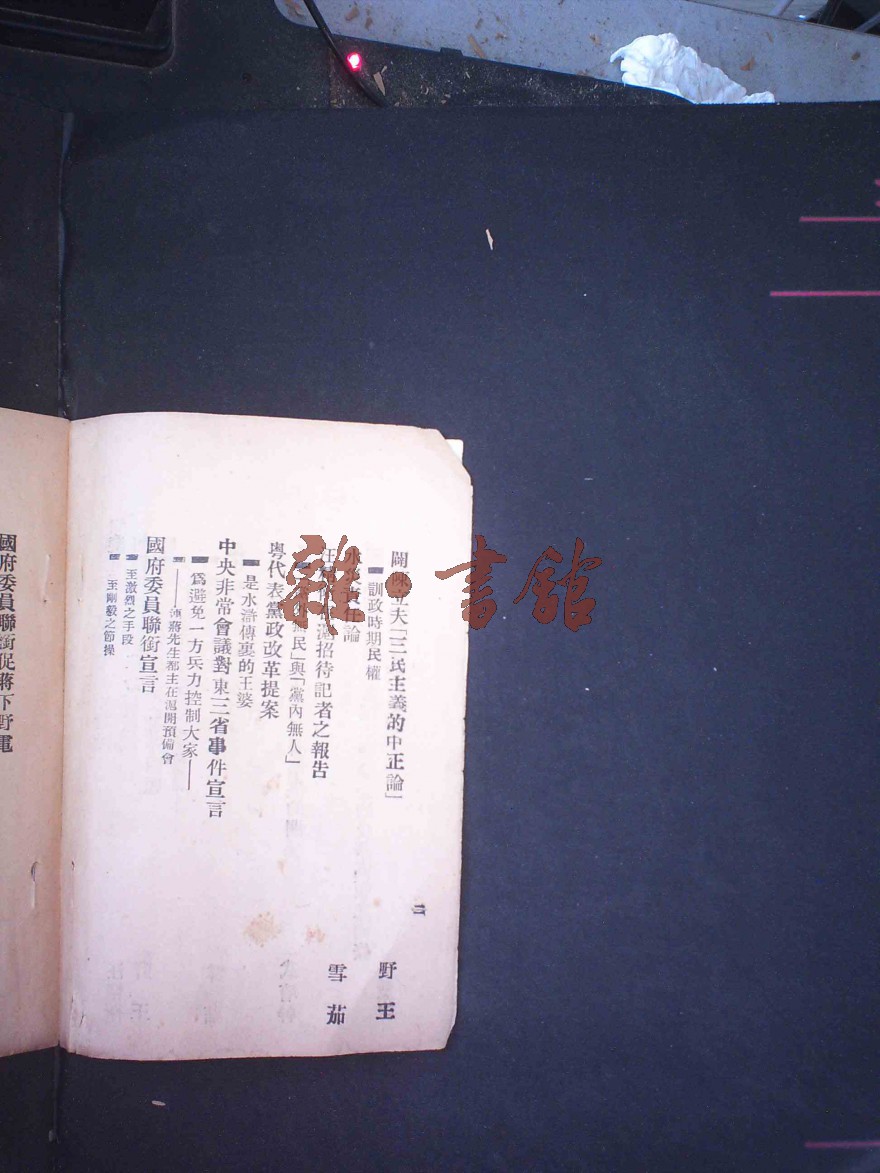 闢陳立夫「三民主義的中正論」
野王
訓政時期民權
責任論
雪茄
汪 滬招待記者之報告
民」與「黨內無人」
粵代表黨政改革提案
是水滸傳裏的王婆
中央非常會議對東三省事件宣言
爲避免一方兵力控制大家——
——汪蔣先生都主在滬開預備會
國府委員聯銜宣言
至激烈之手段
至剛毅之節操
二
國府委員聯銜促蔣下野電
雜·書館